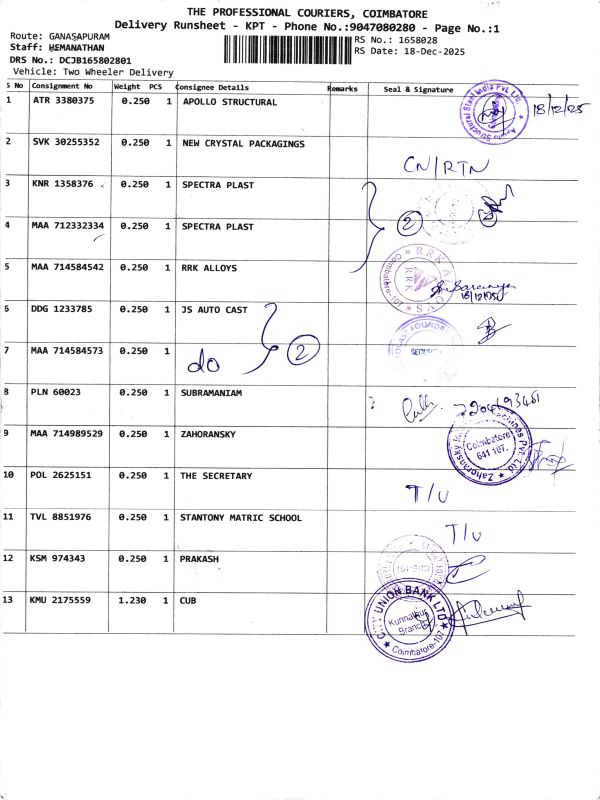 THE PROFESSIONAL COURIERS, COIMBATORE
Delivery Runsheet - KPT - Phone No.:9047080280 - Page No.:1
Route: GANASAPURAM
RS No.: 1658028
Staff: HEMANATHAN
RS Date: 18-Dec-2025
DRS No.: DCJB165802801
Vehicle: Two Wheeler Delivery
S No Consignment No Weight PCS Consignee Details Remarks Seal & Signature
1 ATR 3380375 0.250 1 APOLLO STRUCTURAL
Apollo Structural Steel India Pvt. Ltd.
18/12/25
2 SVK 30255352 0.250 1 NEW CRYSTAL PACKAGINGS
CN/RTN
3 KNR 1358376 0.250 1 SPECTRA PLAST
2
4 MAA 712332334 0.250 1 SPECTRA PLAST
5 MAA 714584542 0.250 1 RRK ALLOYS
RRK ALLOYS
RRK
Coimbatore-107
18/12/25
6 DDG 1233785 0.250 1 JS AUTO CAST
7 MAA 714584573 0.250 1 do 2
8 PLN 60023 0.250 1 SUBRAMANIAM
?
9 MAA 714989529 0.250 1 ZAHORANSKY
Coimbatore
641 107.
10 POL 2625151 0.250 1 THE SECRETARY
T/U
11 TVL 8851976 0.250 1 STANTONY MATRIC SCHOOL
T/U
12 KSM 974343 0.250 1 PRAKASH
13 KMU 2175559 1.230 1 CUB
CITY UNION BANK LTD
Kunnathur
Branch
Coimbatore-107